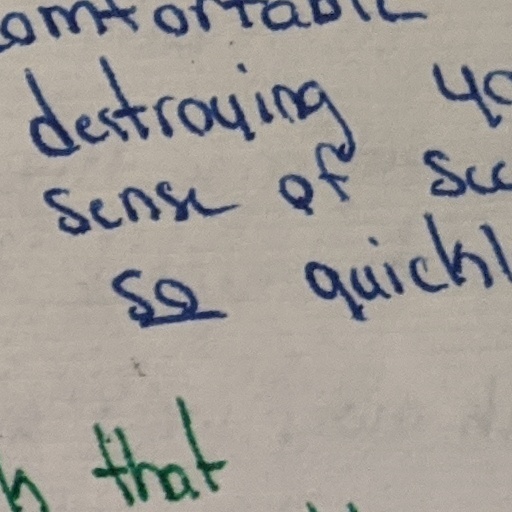 omfortable
destroying yo
sense of sec
so quickl
h that